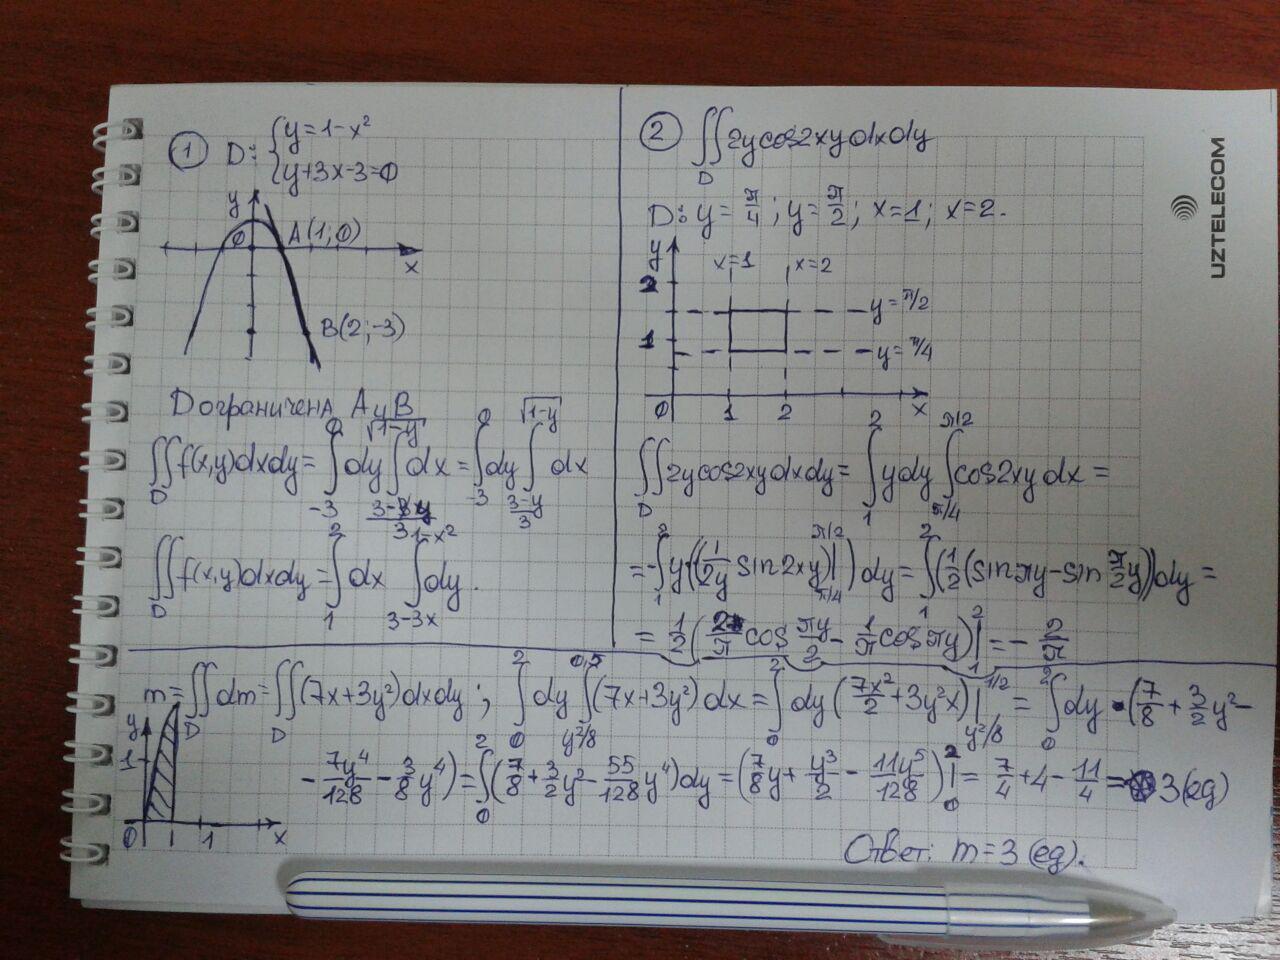 1 D: { y=1-x²
{ y+3x-3=0
y
0
A(1;0)
x
B(2;-3)
D ограничена A y B
∬_D f(x,y)dxdy = ∫_{-3}^{0} dy ∫^{√(1-y)} dx = ∫_{-3}^{0} dy ∫_{(3-y)/3}^{√(1-y)} dx
∬_D f(x,y)dxdy = ∫_{1}^{2} dx ∫_{3-3x}^{1-x²} dy.
2 ∬_D 2ycos2xydxdy
D: y = π/4; y = π/2; x=1; x=2.
y
x=1 x=2
2
y=π/2
1
y=π/4
0 1 2 x
∬_D 2ycos2xydxdy = ∫_{1}^{2} ydy ∫_{π/4}^{π/2} cos2xydx =
= ∫_{1}^{2} y((1/2y sin2xy)|_{π/4}^{π/2}) dy = ∫_{1}^{2} (1/2(sinπy - sin π/2 y)) dy =
= 1/2 (2/π cos πy/2 - 1/π cosπy)|_{1}^{2} = - 2/π
m = ∬_D dm = ∬_D (7x+3y²)dxdy; ∫_{0}^{2} dy ∫_{y²/8}^{0,5} (7x+3y²)dx = ∫_{0}^{2} dy (7x²/2 + 3y²x)|_{y²/8}^{1/2} = ∫_{0}^{2} dy · (7/8 + 3/2 y² -
y
1
0 1 x
- 7y⁴/128 - 3/8 y⁴) = ∫_{0}^{2} (7/8 + 3/2 y² - 55/128 y⁴)dy = (7/8 y + y³/2 - 11y⁵/128)|_{0}^{2} = 7/4 + 4 - 11/4 = 3(ед)
Ответ: m=3 (ед).
UZTELECOM